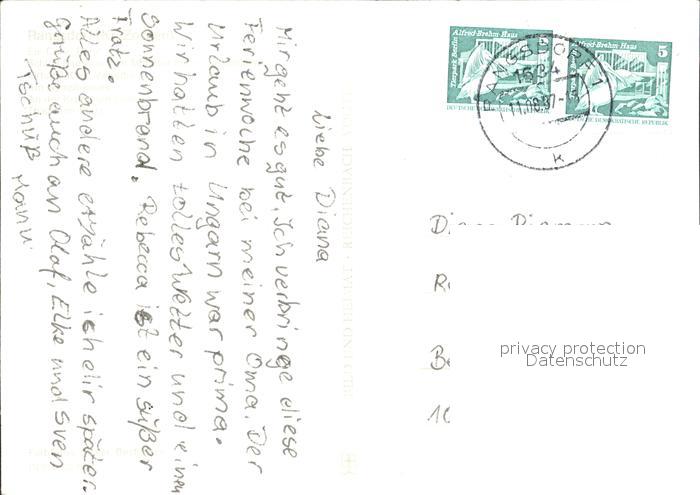 Liebe Diana
Mir geht es gut. Ich verbringe diese
Ferienwoche bei meiner Oma. Der
Urlaub in Ungarn war prima.
Wir hatten tolles Wetter und einen
Sonnenbrand. Rebecca ist ein süßer
Fratz.
Alles andere erzähle ich dir später.
Grüße auch an Olaf, Elke und Sven
Tschüß Manu
Alfred-Brehm Haus 5
Tierpark Berlin
Alfred-Brehm Haus 5
Tierpark Berlin
DEUTSCHE DEMOKRATISCHE REPUBLIK
RANGSDORF 1
1634
11.08.87
K
BILD UND HEIMAT · REICHENBACH
Diana
R
Be
10
privacy protection
Datenschutz